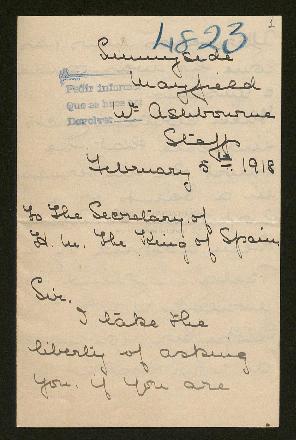 1
4823
Sunnyside
Mayfield
Nr Ashbourne
Staffs
Pedir inform
Que se hace
Devolver
February 5th. 1918
To The Secretary of
H. M. The King of Spain,
Sir.
I take the
liberty of asking
you. if you are